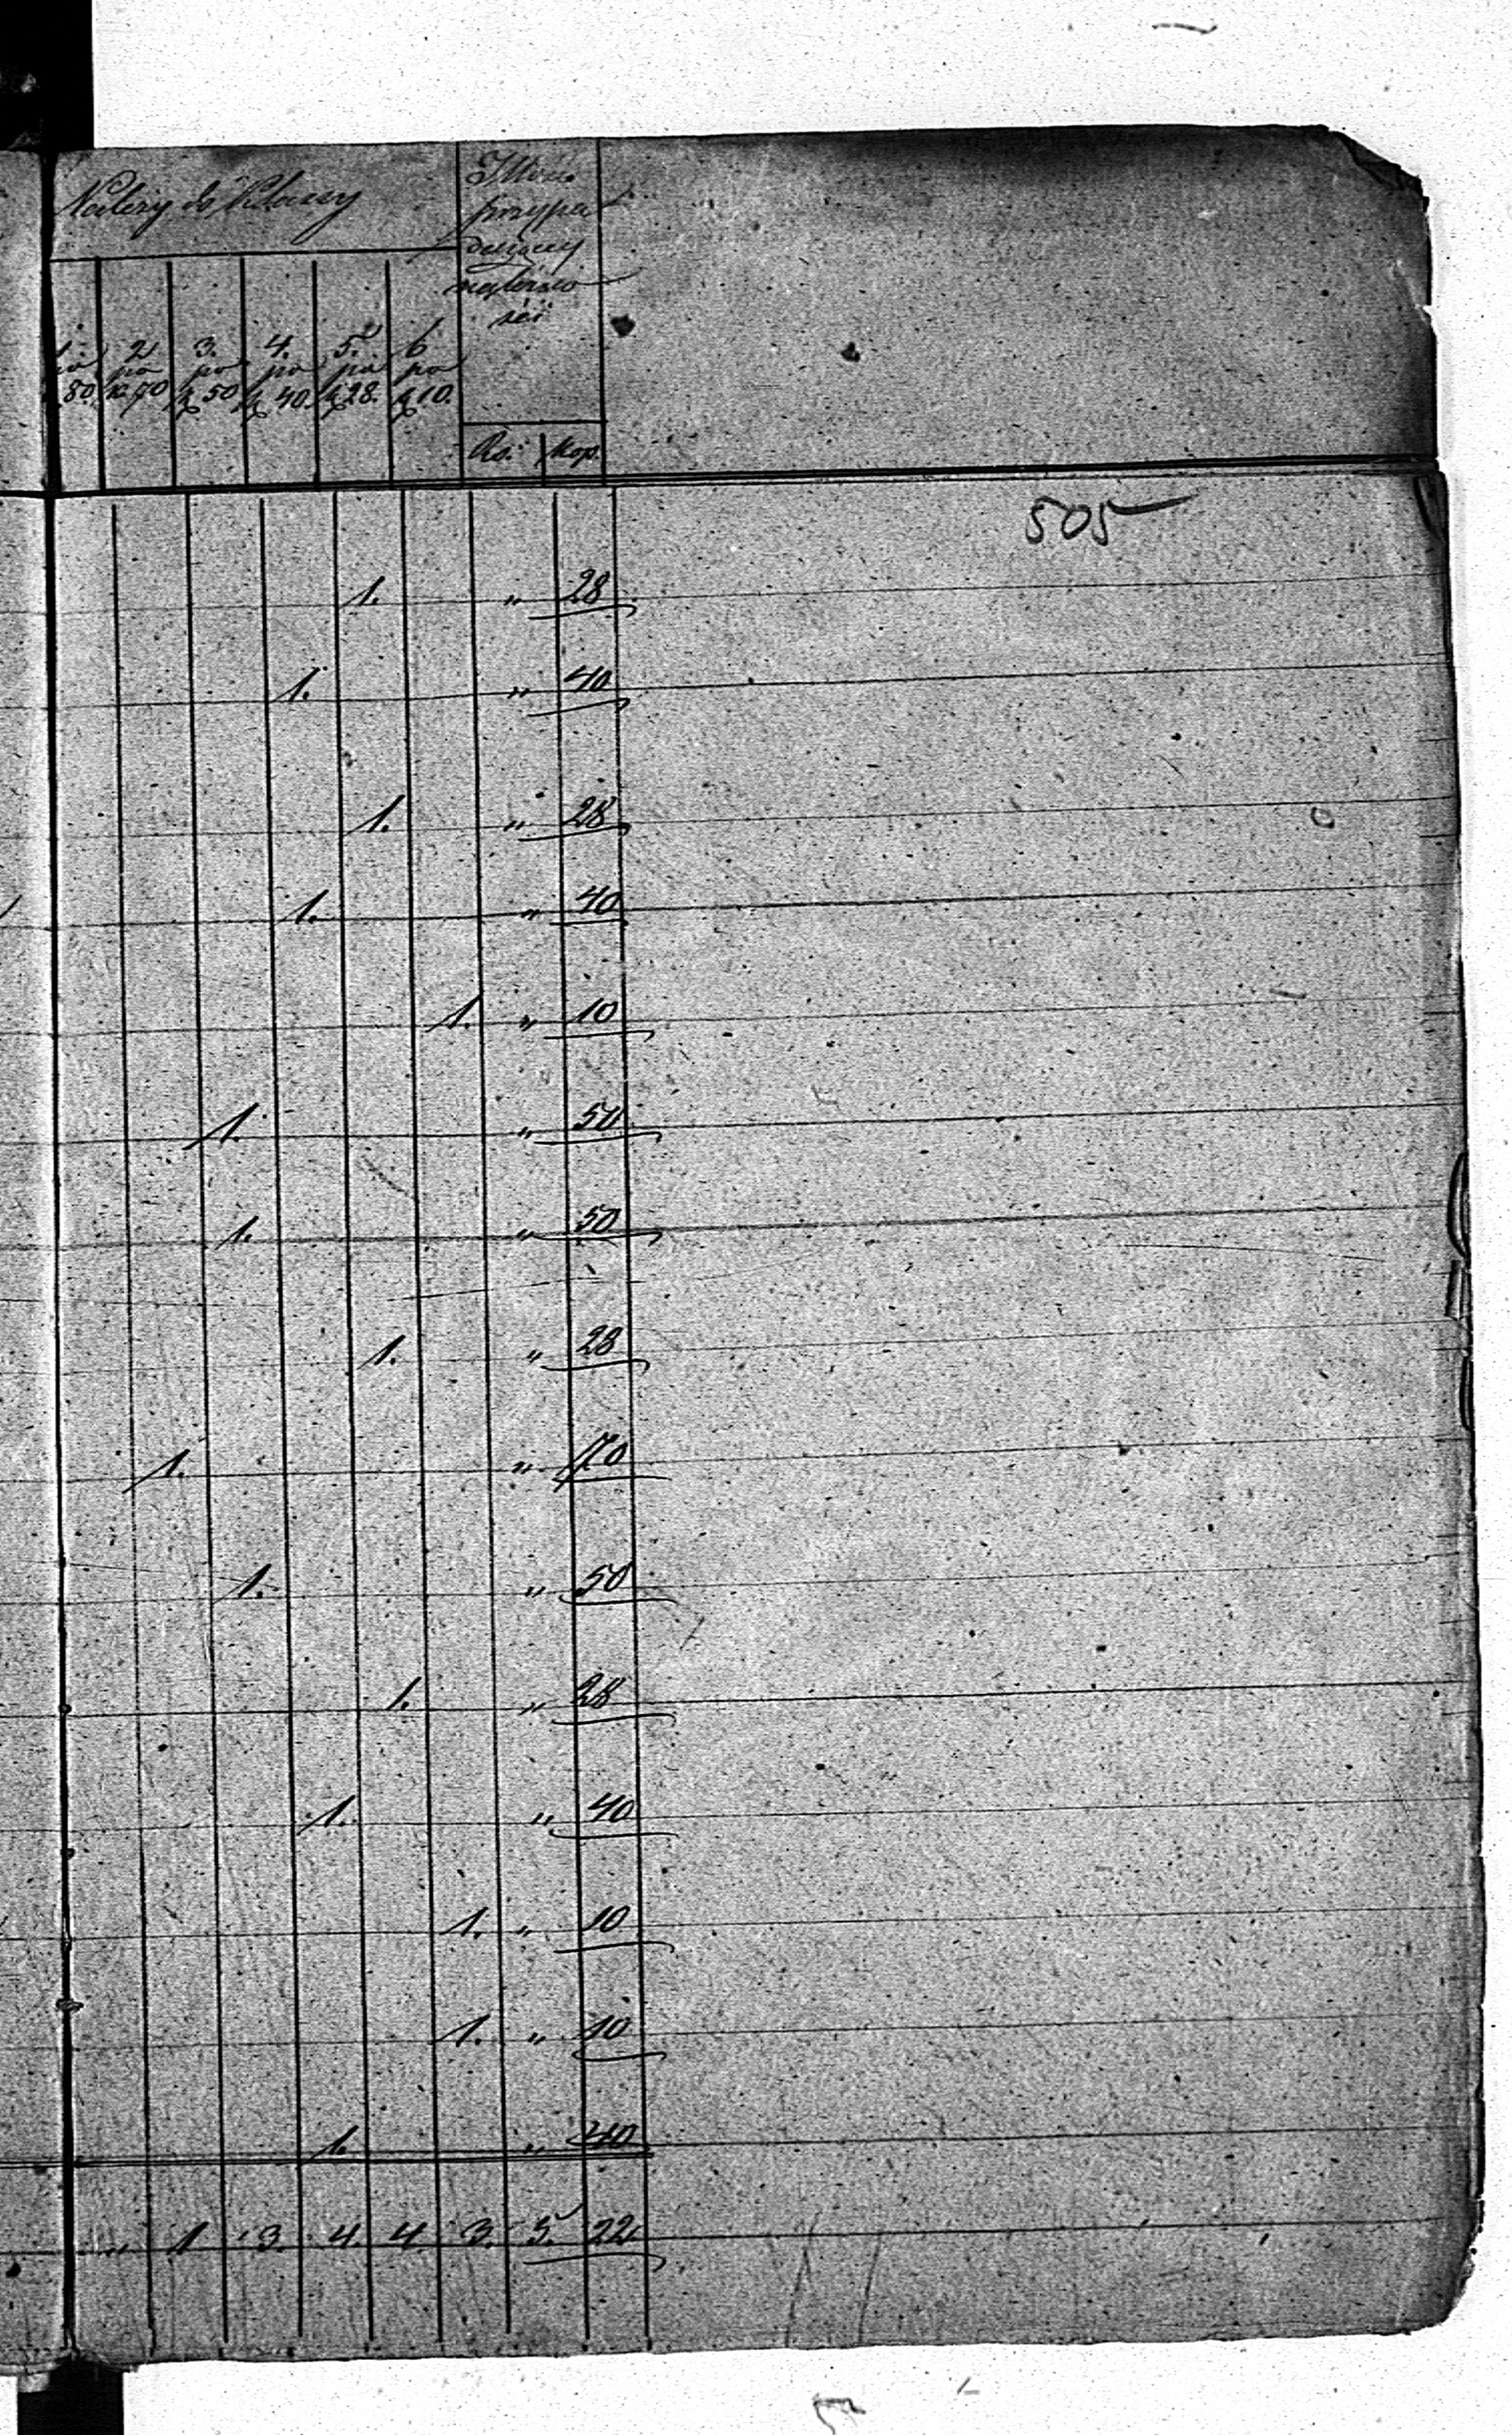 Należy do Klassy
Ilość
przypa
dającej
należyto
ści
1. 2 3. 4. 5. 6
po po po po po po
80. k. 70 k. 50 k. 40. k. 28. k. 10.
Rs. Kop.
505
1. " 28
1. " 40
1. " 28
1. " 40
1. " 10
1. " 50
1. " 50
1. " 28
1. " 70
1. " 50
1. " 28
1. " 40
1. " 10
1. " 10
1. " 40
" 1 3. 4. 4. 3. 5. 22